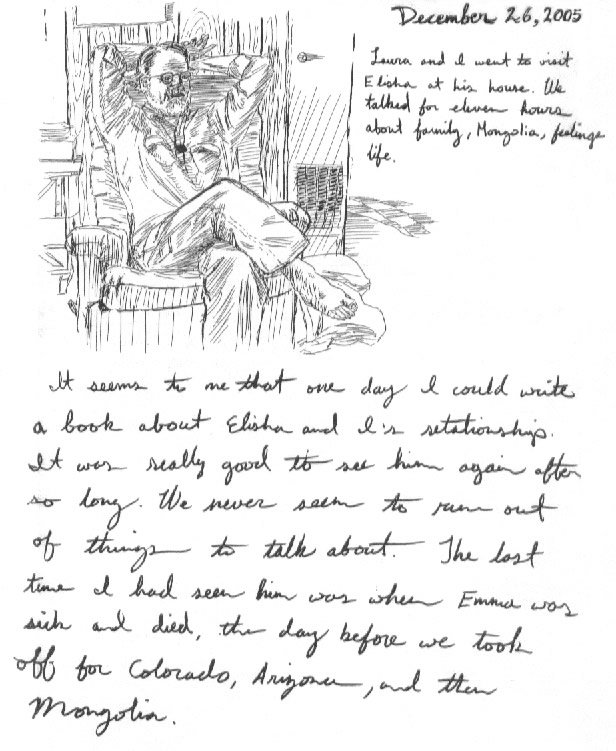 December 26, 2005
Laura and I went to visit
Elisha at his house. We
talked for eleven hours
about family, Mongolia, feelings
life.
It seems to me that one day I could write
a book about Elisha and I's relationship.
It was really good to see him again after
so long. We never seem to run out
of things to talk about. The last
time I had seen him was when Emma was
sick and died, the day before we took
off for Colorado, Arizona, and then
Mongolia.